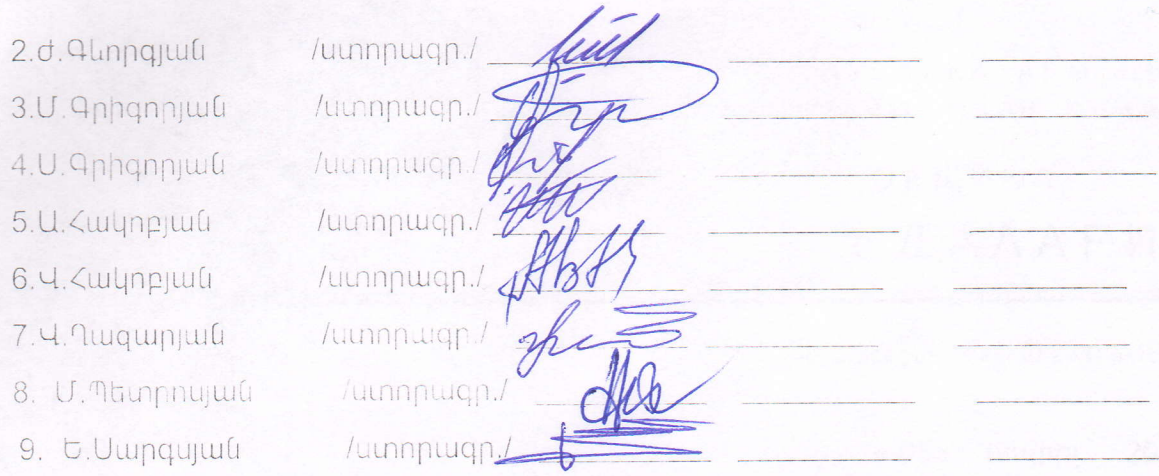 2.Ժ.Գևորգյան /ստորագր./
3.Մ.Գրիգորյան /ստորագր./
4.Ս.Գրիգորյան /ստորագր./
5.Ա.Հակոբյան /ստորագր./
6.Վ.Հակոբյան /ստորագր./
7.Վ.Ղազարյան /ստորագր./
8. Մ.Պետրոսյան /ստորագր./
9. Ե.Սարգսյան /ստորագր./